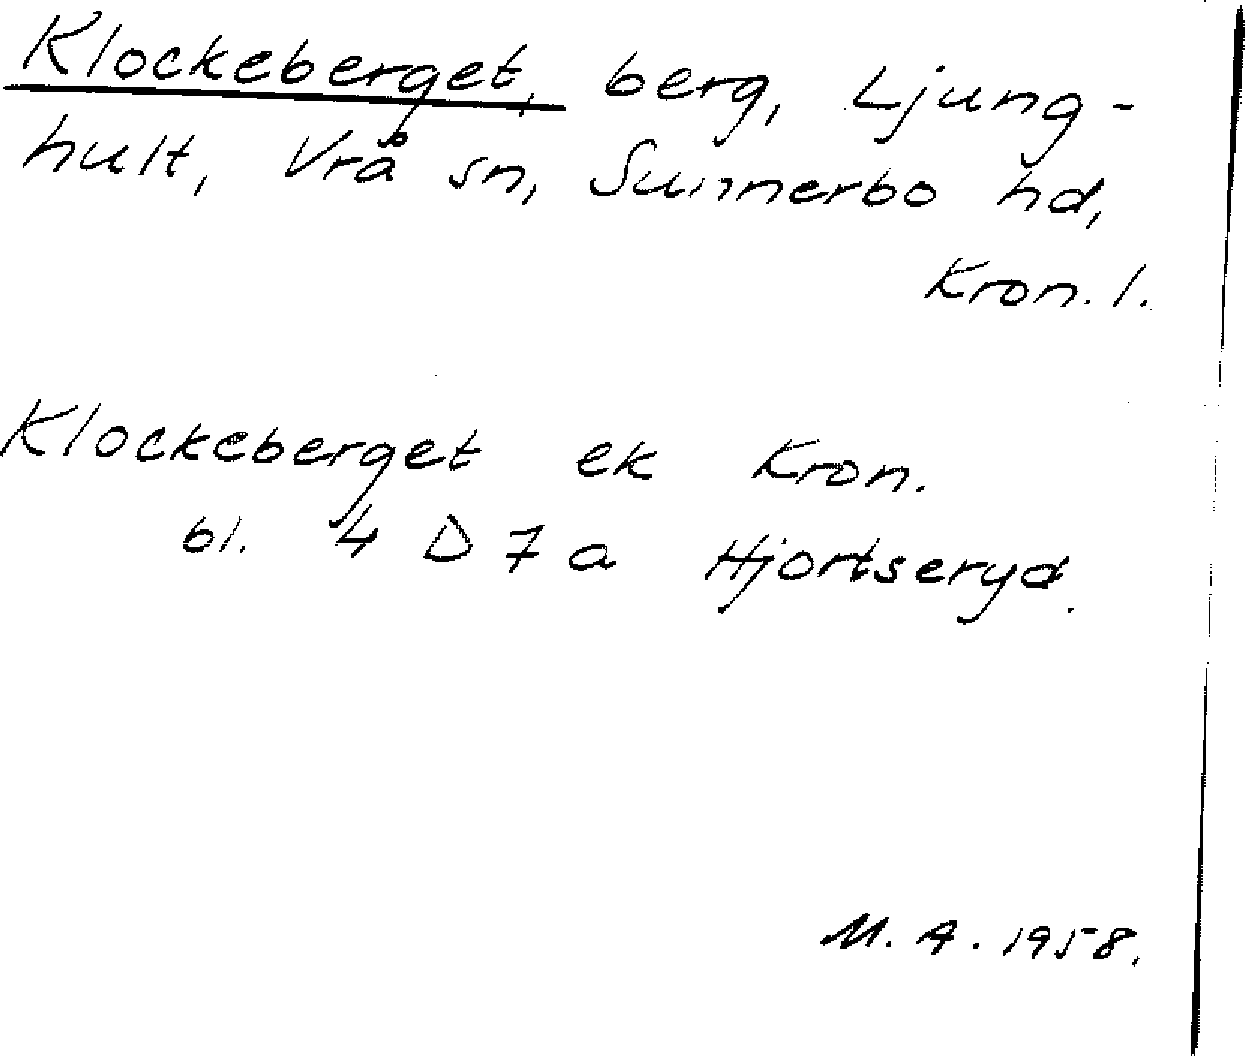 Klockeberget, berg, Ljung-
hult, Vrå sn, Sunnerbo hd,
Kron. l.
Klockeberget ek Kron.
bl. 4 D 7 a Hjortseryd.
M. A. 1958.